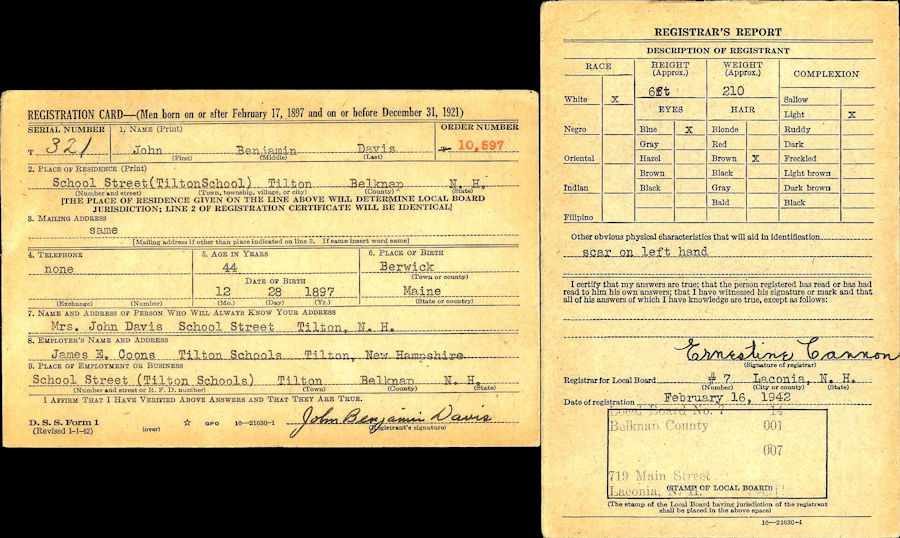 REGISTRATION CARD—(Men born on or after February 17, 1897 and on or before December 31, 1921)
SERIAL NUMBER 1. NAME (Print) ORDER NUMBER
T 321 John Benjamin Davis T 10,597
(First) (Middle) (Last)
2. PLACE OF RESIDENCE (Print)
School Street(TiltonSchool) Tilton Belknap N. H.
(Number and street) (Town, township, village, or city) (County) (State)
[THE PLACE OF RESIDENCE GIVEN ON THE LINE ABOVE WILL DETERMINE LOCAL BOARD
JURISDICTION; LINE 2 OF REGISTRATION CERTIFICATE WILL BE IDENTICAL]
3. MAILING ADDRESS
same
[Mailing address if other than place indicated on line 2. If same insert word same]
4. TELEPHONE 5. AGE IN YEARS 6. PLACE OF BIRTH
none 44 Berwick
(Town or county)
DATE OF BIRTH
12 28 1897 Maine
(Exchange) (Number) (Mo.) (Day) (Yr.) (State or country)
7. NAME AND ADDRESS OF PERSON WHO WILL ALWAYS KNOW YOUR ADDRESS
Mrs. John Davis School Street Tilton, N. H.
8. EMPLOYER'S NAME AND ADDRESS
James E. Coons Tilton Schools Tilton, New Hampshire
9. PLACE OF EMPLOYMENT OR BUSINESS
School Street (Tilton Schools) Tilton Belknap N. H.
(Number and street or R. F. D. number) (Town) (County) (State)
I AFFIRM THAT I HAVE VERIFIED ABOVE ANSWERS AND THAT THEY ARE TRUE.
John Benjamin Davis
D. S. S. Form 1
(Revised 1-1-42) (over) ☆ GPO 16—21630-1 (Registrant's signature)
REGISTRAR'S REPORT
DESCRIPTION OF REGISTRANT
RACE HEIGHT (Approx.) WEIGHT (Approx.) COMPLEXION
6ft 210
White X Sallow
EYES HAIR Light X
Negro Blue X Blonde Ruddy
Gray Red Dark
Oriental Hazel Brown X Freckled
Brown Black Light brown
Indian Black Gray Dark brown
Bald Black
Filipino
Other obvious physical characteristics that will aid in identification
scar on left hand
I certify that my answers are true; that the person registered has read or has had
read to him his own answers; that I have witnessed his signature or mark and that
all of his answers of which I have knowledge are true, except as follows:
Ernestine Cannon
(Signature of registrar)
Registrar for Local Board # 7 Laconia, N. H.
(Number) (City or county) (State)
Date of registration February 16, 1942
Local Board No. 7 14
Belknap County 001
007
719 Main Street
Laconia, N. H.
(STAMP OF LOCAL BOARD)
(The stamp of the Local Board having jurisdiction of the registrant
shall be placed in the above space)
16—21630-1